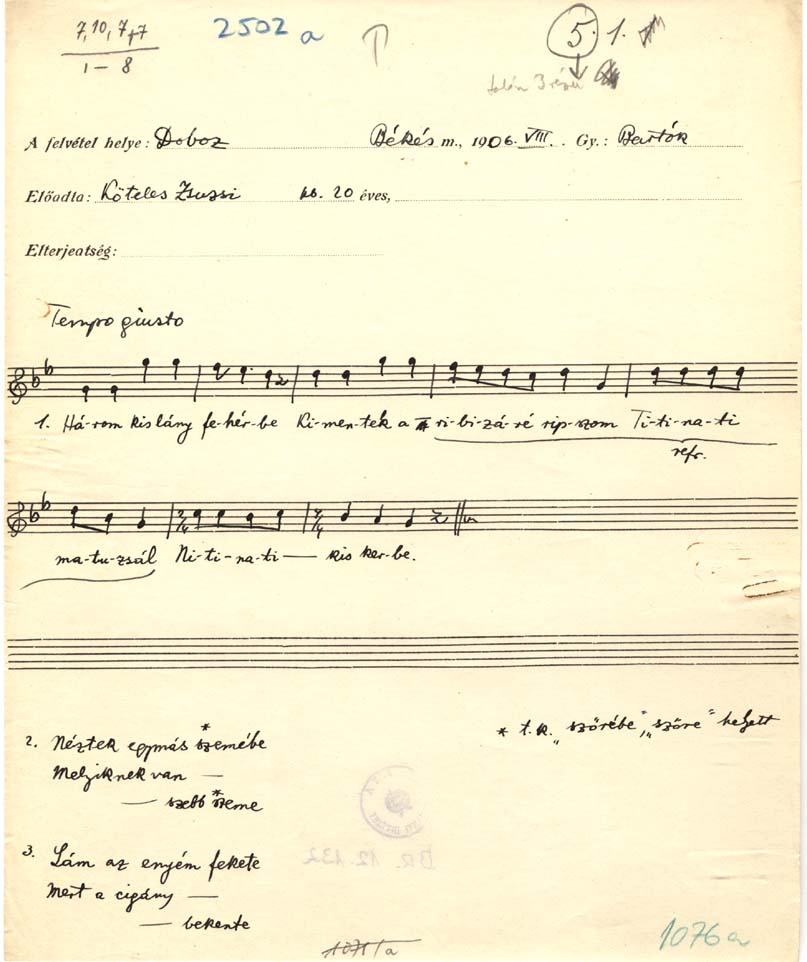 7, 10, 7+7
1–8
2502 a
5. 1.
talán 3 részű
A felvétel helye: Doboz Békés m., 1906. VIII. Gy.: Bartók
Előadta: Köteles Zsuzsi kb. 20 éves,
Elterjeatség:
Tempo giusto
1. Há-rom kis lány fe-hér-be Ki-men-tek a ri-bi-zá-ré rip-szom Ti-ti-na-ti
refr.
ma-tu-zsál Ni-ti-na-ti — kis ker-be.
2. Néztek egymás *szemébe
Melyiknek van —
— szebb *szeme
* t.k. „szőrébe", „szőre" helyett
3. Lám az enyém fekete
Mert a cigány —
— bekente
BR. 12.132
1071/a
1076 a